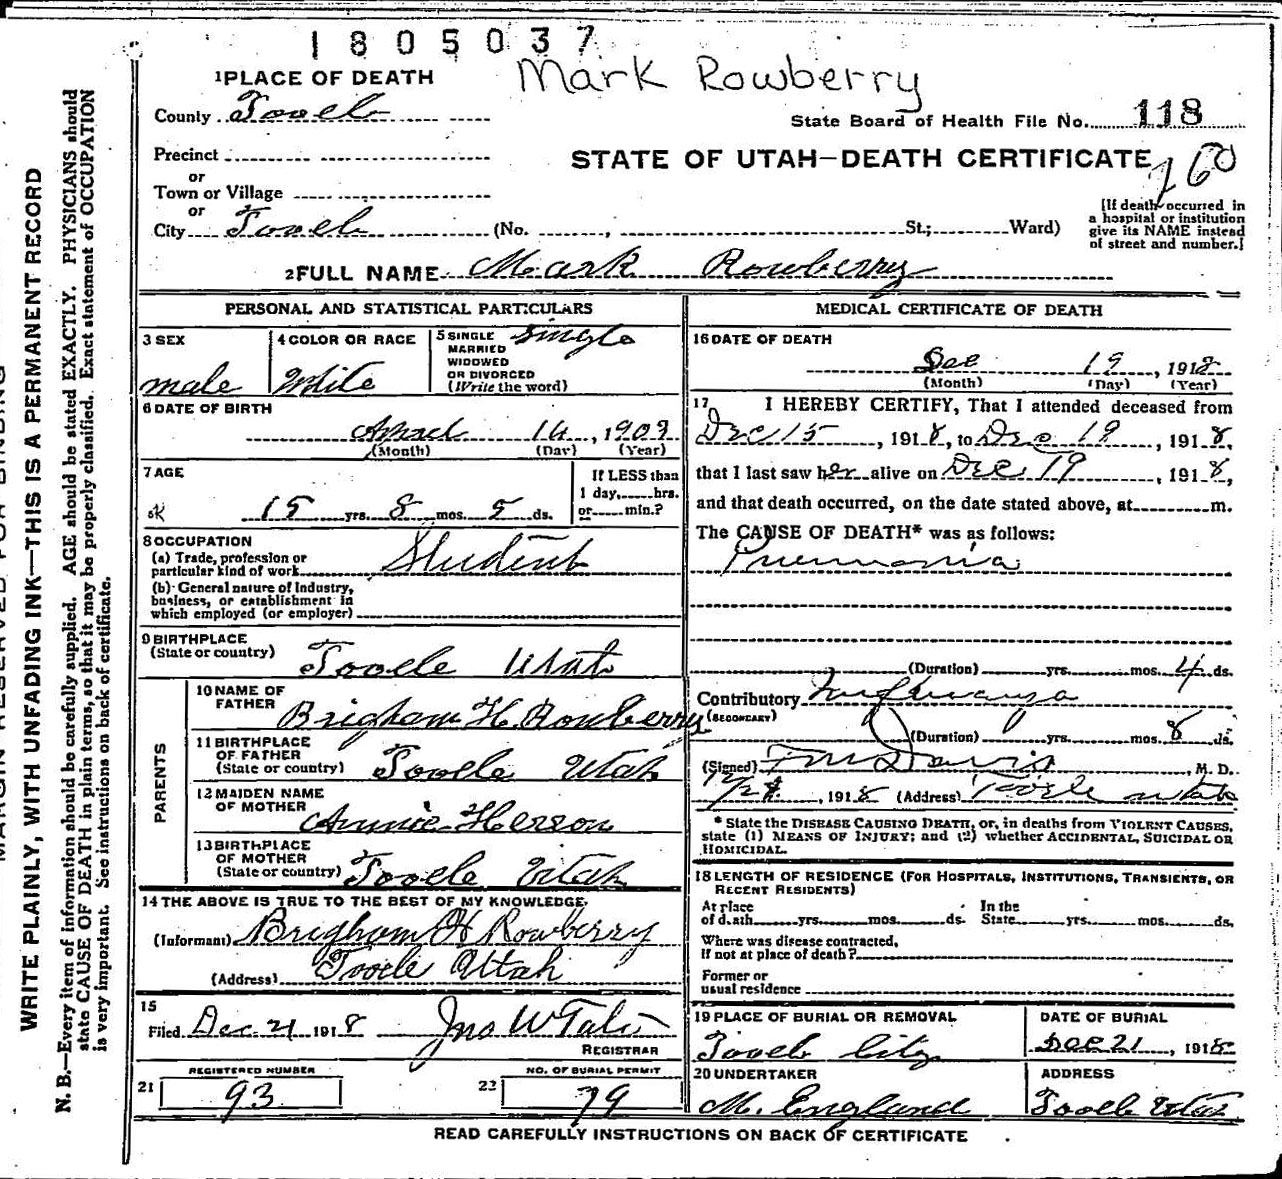 1805037
Mark Rowberry
1 PLACE OF DEATH
County Tooele
State Board of Health File No. 118
Precinct
or
STATE OF UTAH—DEATH CERTIFICATE
160
Town or Village
or
City Tooele (No. , St.; Ward)
[If death occurred in
a hospital or institution
give its NAME instead
of street and number.]
2 FULL NAME Mark Rowberry
PERSONAL AND STATISTICAL PARTICULARS
3 SEX
male
4 COLOR OR RACE
White
5 SINGLE
MARRIED
WIDOWED
OR DIVORCED
(Write the word)
Single
6 DATE OF BIRTH
14, 1903
(Month) (Day) (Year)
7 AGE
15 yrs. 8 mos. 5 ds.
If LESS than
1 day, hrs.
or min.?
8 OCCUPATION
(a) Trade, profession or
particular kind of work Student
(b) General nature of Industry,
business, or establishment in
which employed (or employer)
9 BIRTHPLACE
(State or country) Tooele Utah
PARENTS
10 NAME OF
FATHER
Brigham H. Rowberry
11 BIRTHPLACE
OF FATHER
(State or country) Tooele Utah
12 MAIDEN NAME
OF MOTHER
Annie Herron
13 BIRTHPLACE
OF MOTHER
(State or country) Tooele Utah
14 THE ABOVE IS TRUE TO THE BEST OF MY KNOWLEDGE
(Informant) Brigham H Rowberry
(Address) Tooele Utah
15
Filed Dec 21 1918 Jno W Tate
REGISTRAR
REGISTERED NUMBER
21 93
NO. OF BURIAL PERMIT
22 79
MEDICAL CERTIFICATE OF DEATH
16 DATE OF DEATH
Dec 19, 1918
(Month) (Day) (Year)
17 I HEREBY CERTIFY, That I attended deceased from
Dec 15, 1918, to Dec 19, 1918,
that I last saw her alive on Dec 19, 1918,
and that death occurred, on the date stated above, at m.
The CAUSE OF DEATH* was as follows:
Pneumonia
(Duration) yrs. mos. 4 ds.
Contributory Influenza
(SECONDARY)
(Duration) yrs. mos. 8 ds.
(Signed) Davis, M. D.
, 1918 (Address) Tooele Utah
* State the DISEASE CAUSING DEATH, or, in deaths from VIOLENT CAUSES,
state (1) MEANS OF INJURY; and (2) whether ACCIDENTAL, SUICIDAL OR
HOMICIDAL.
18 LENGTH OF RESIDENCE (FOR HOSPITALS, INSTITUTIONS, TRANSIENTS, OR
RECENT RESIDENTS)
At place
of death yrs. mos. ds.
In the
State yrs. mos. ds.
Where was disease contracted,
if not at place of death?
Former or
usual residence
19 PLACE OF BURIAL OR REMOVAL
Tooele City
DATE OF BURIAL
Dec 21, 1918
20 UNDERTAKER
M. England
ADDRESS
Tooele Utah
READ CAREFULLY INSTRUCTIONS ON BACK OF CERTIFICATE
WRITE PLAINLY, WITH UNFADING INK—THIS IS A PERMANENT RECORD
N. B.—Every item of information should be carefully supplied. AGE should be stated EXACTLY. PHYSICIANS should
state CAUSE OF DEATH in plain terms, so that it may be properly classified. Exact statement of OCCUPATION
is very important. See instructions on back of certificate.